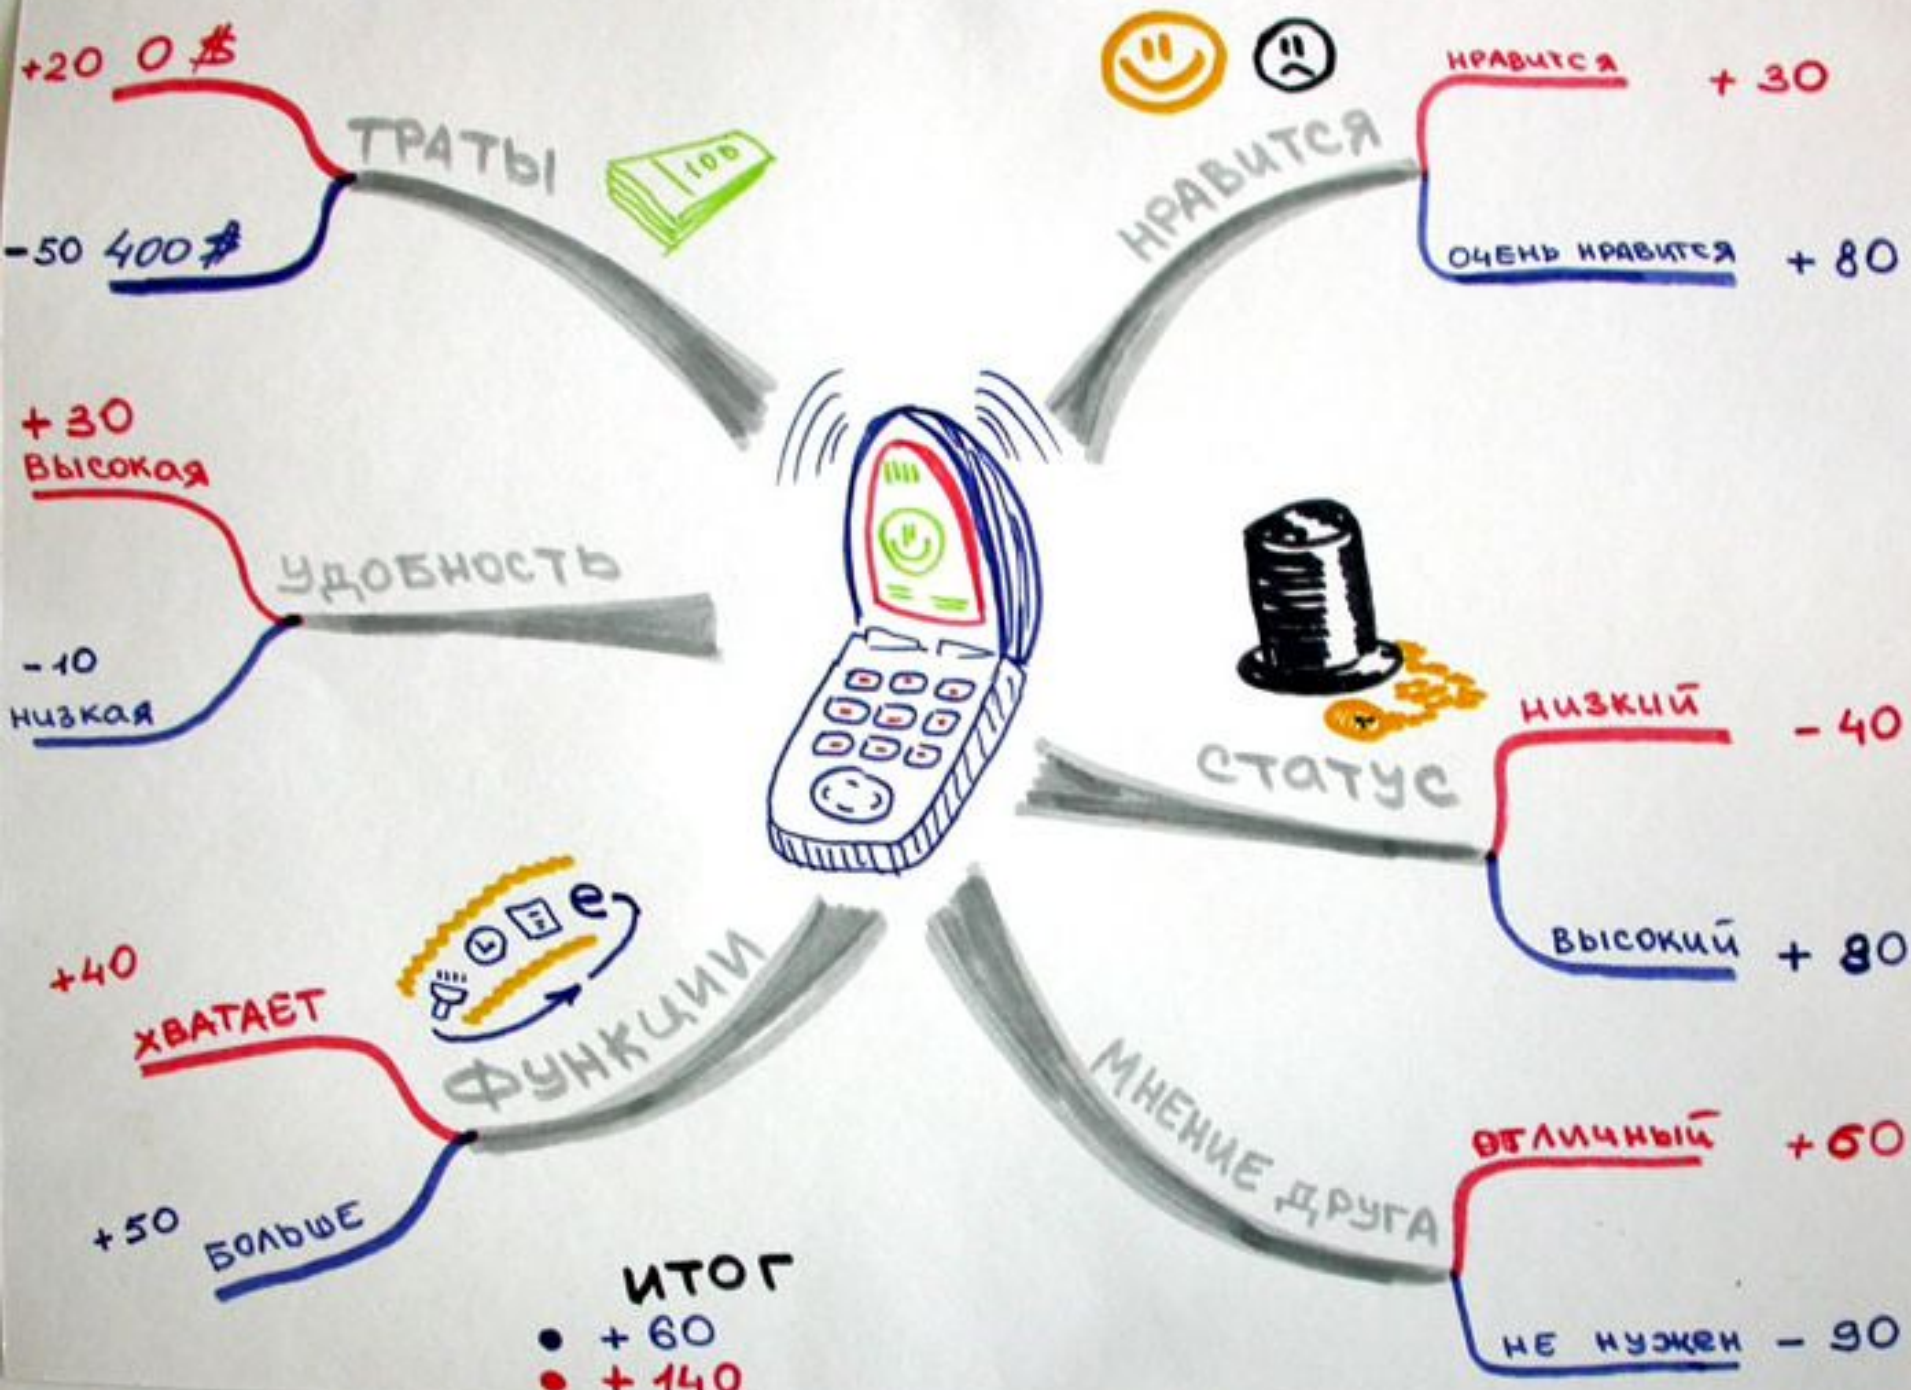 +20 0 $
ТРАТЫ
-50 400 $
100
+30
ВЫСОКАЯ
УДОБНОСТЬ
-10
НИЗКАЯ
+40
ХВАТАЕТ
e
ФУНКЦИИ
+50
БОЛЬШЕ
НРАВИТСЯ
НРАВИТСЯ +30
ОЧЕНЬ НРАВИТСЯ +80
СТАТУС
НИЗКИЙ -40
ВЫСОКИЙ +80
МНЕНИЕ ДРУГА
ОТЛИЧНЫЙ +60
НЕ НУЖЕН -90
ИТОГ
• +60
• +140